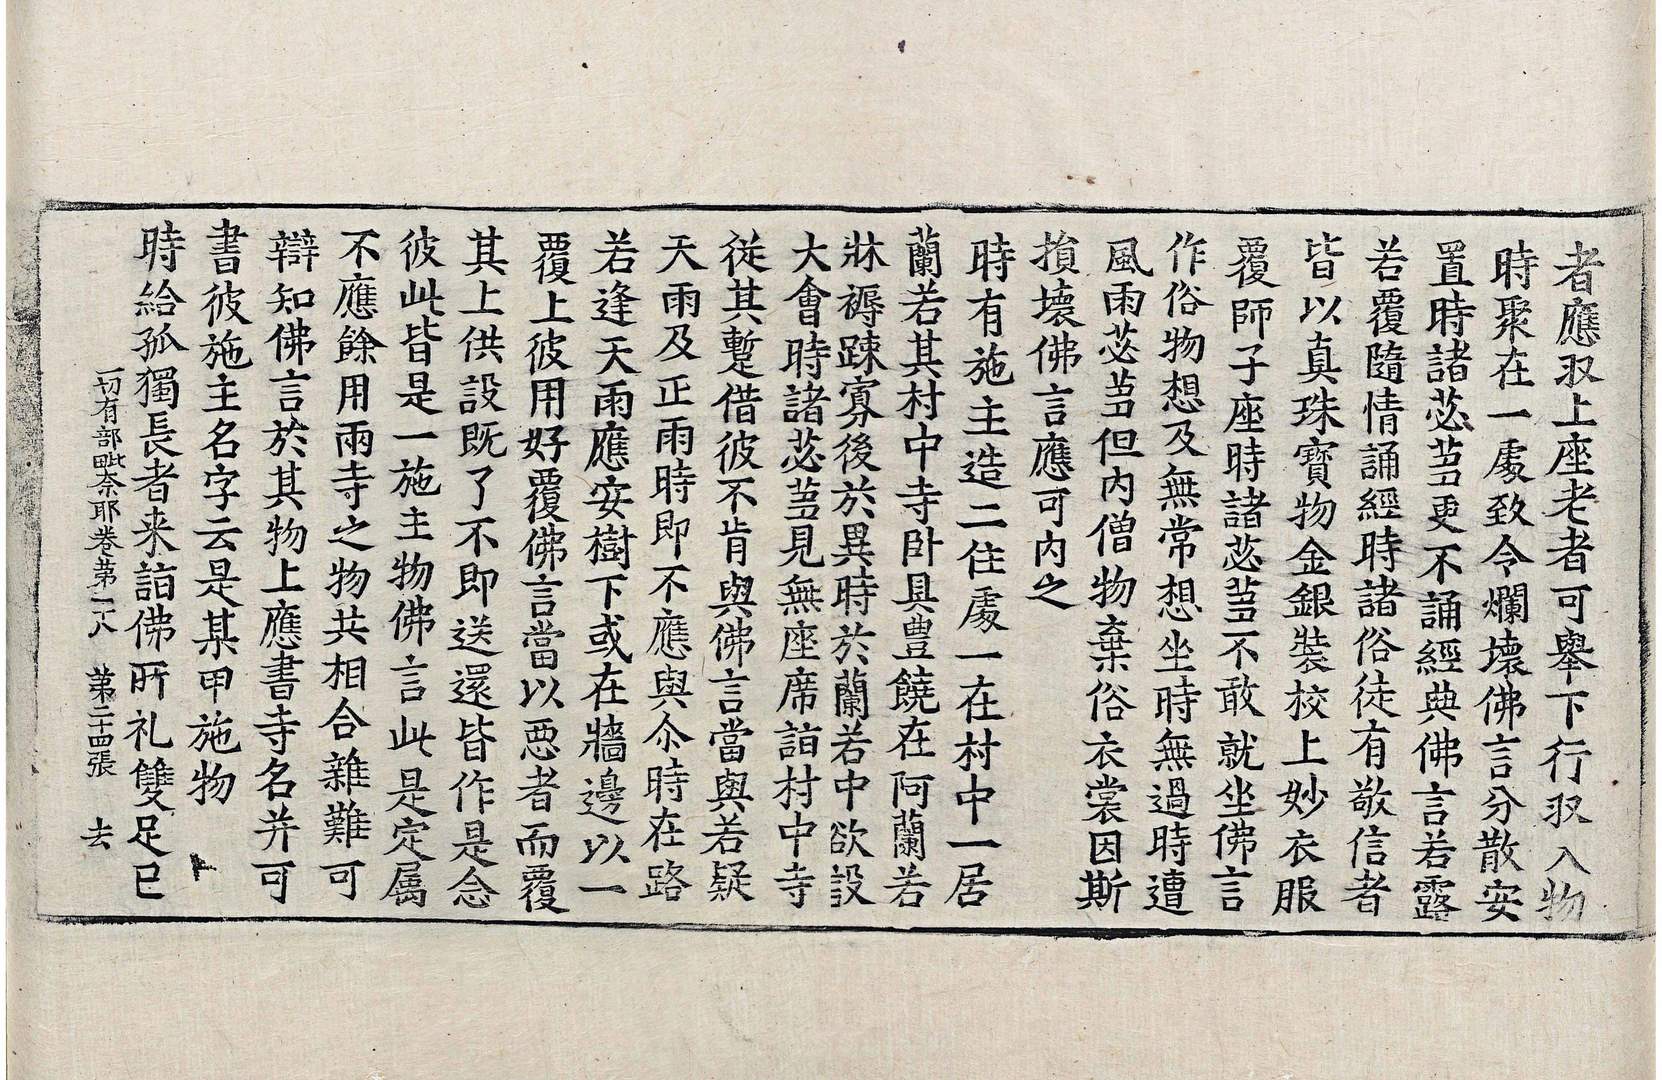 者應収上座老者可舉下行収入物
時聚在一處致令爛壞佛言分散安
置時諸苾芻更不誦經典佛言若露
若覆隨情誦經時諸俗徒有敬信者
皆以真珠寶物金銀裝校上妙衣服
覆師子座時諸苾芻不敢就坐佛言
作俗物想及無常想坐時無過時遭
風雨苾芻但内僧物棄俗衣裳因斯
損壞佛言應可内之
時有施主造二住處一在村中一居
蘭若其村中寺卧具豊饒在阿蘭若
牀褥踈寡後於異時於蘭若中欲設
大會時諸苾芻見無座席詣村中寺
從其蹔借彼不肯與佛言當與若疑
天雨及正雨時即不應與尒時在路
若逢天雨應安樹下或在牆邊以一
覆上彼用好覆佛言當以惡者而覆
其上供設既了不即送還皆作是念
彼此皆是一施主物佛言此是定属
不應餘用兩寺之物共相合雜難可
辯知佛言於其物上應書寺名并可
書彼施主名字云是某甲施物
時給孤獨長者来詣佛所礼雙足已
一切有部毗奈耶卷第十八 第二十四張 去